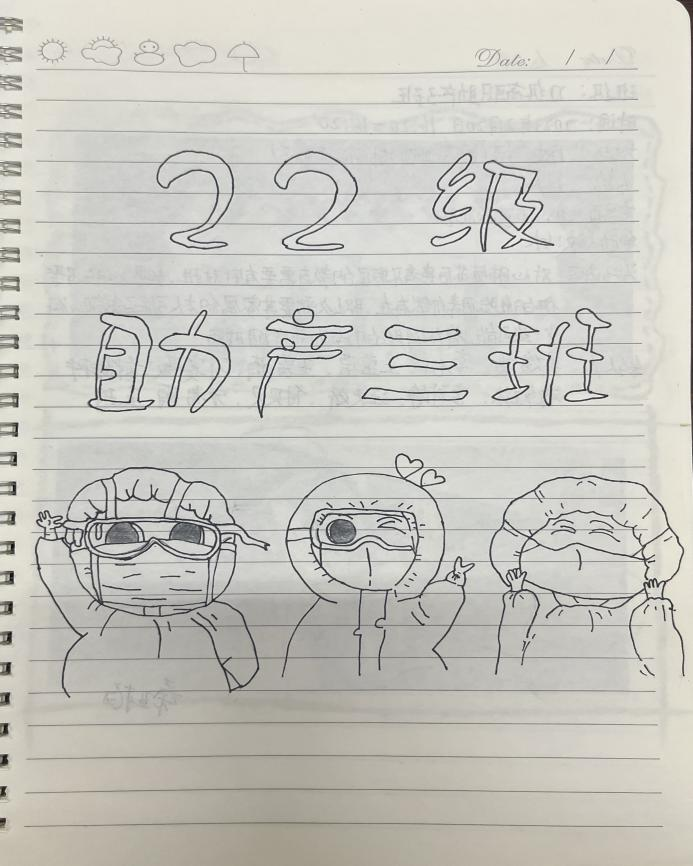 Date: / /
22级
助产三班